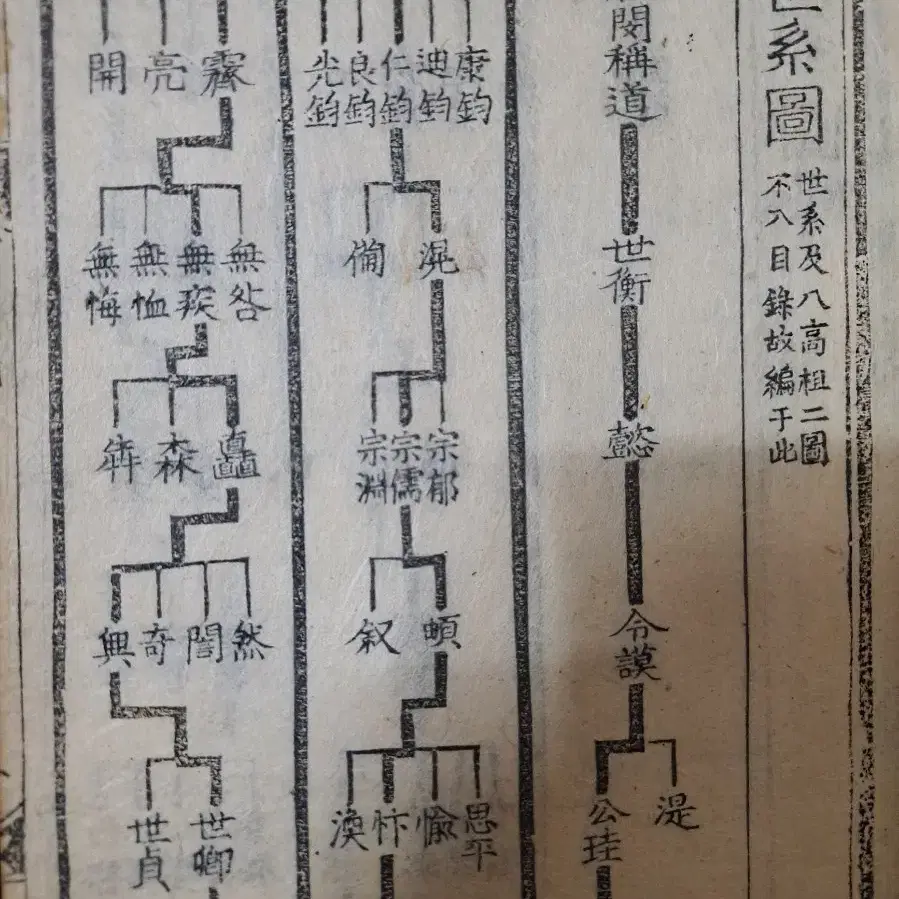 世系圖
世系及八高祖二圖
不入目錄故編于此
閔稱道
世衡
懿
令謨
湜
公珪
康鈞
迪鈞
仁鈞
良鈞
光鈞
滉
宗郁
宗儒
宗淵
頔
叙
思平
愉
忭
渙
霽
亮
開
無咎
無疾
無恤
無悔
矗
森
犇
然
誾
奇
興
世卿
世貞